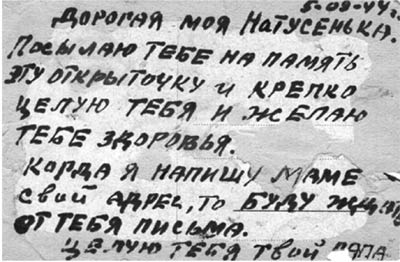 5-09-44г.
ДОРОГАЯ МОЯ НАТУСЕНЬКА.
ПОСЫЛАЮ ТЕБЕ НА ПАМЯТЬ
ЭТУ ОТКРЫТОЧКУ И КРЕПКО
ЦЕЛУЮ ТЕБЯ И ЖЕЛАЮ
ТЕБЕ ЗДОРОВЬЯ.
КОГДА Я НАПИШУ МАМЕ
СВОЙ АДРЕС, ТО БУДУ ЖДАТЬ
ОТ ТЕБЯ ПИСЬМА.
ЦЕЛУЮ ТЕБЯ ТВОЙ ПАПА